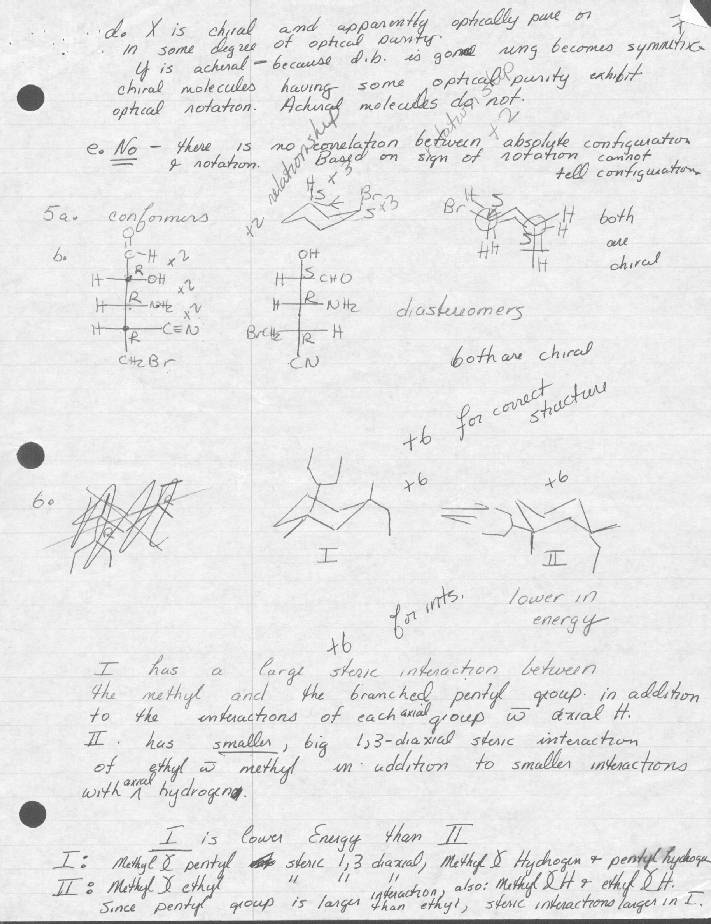 d. X is chiral and apparently optically pure or
in some degree of optical purity.
Y is achiral - because d.b. is gone ring becomes symmetric
chiral molecules having some optical purity exhibit
optical rotation. Achiral molecules do not.
e. No - there is no correlation between absolute configuration
& rotation. Based on sign of rotation cannot
tell configuration.
+2 relationship
+2
x 3
5a. conformers
H
S
Br
S x3
Br
H
S
H
H
H H
S
H
H
both
are
chiral
b.
O
C-H x2
H R OH x2
H R NH2 x2
H R C≡N
CH2Br
OH
H S CHO
H R NH2
BrCH2 R H
CN
diastereomers
both are chiral
+6 for correct
structure
6.
+6
+6
I
II
lower in
energy
+6 for ints.
I has a large steric interaction between
the methyl and the branched pentyl group in addition
to the interactions of each axial group w̄ axial H.
II has smaller, big 1,3-diaxial steric interaction
of ethyl w̄ methyl in addition to smaller interactions
with axial hydrogens.
I is lower Energy than II
I: Methyl pentyl steric 1,3 diaxial, Methyl Hydrogen & pentyl hydrogen
II: Methyl ethyl " " " interaction, also: Methyl H & ethyl H.
Since pentyl group is larger than ethyl, steric interactions larger in I.